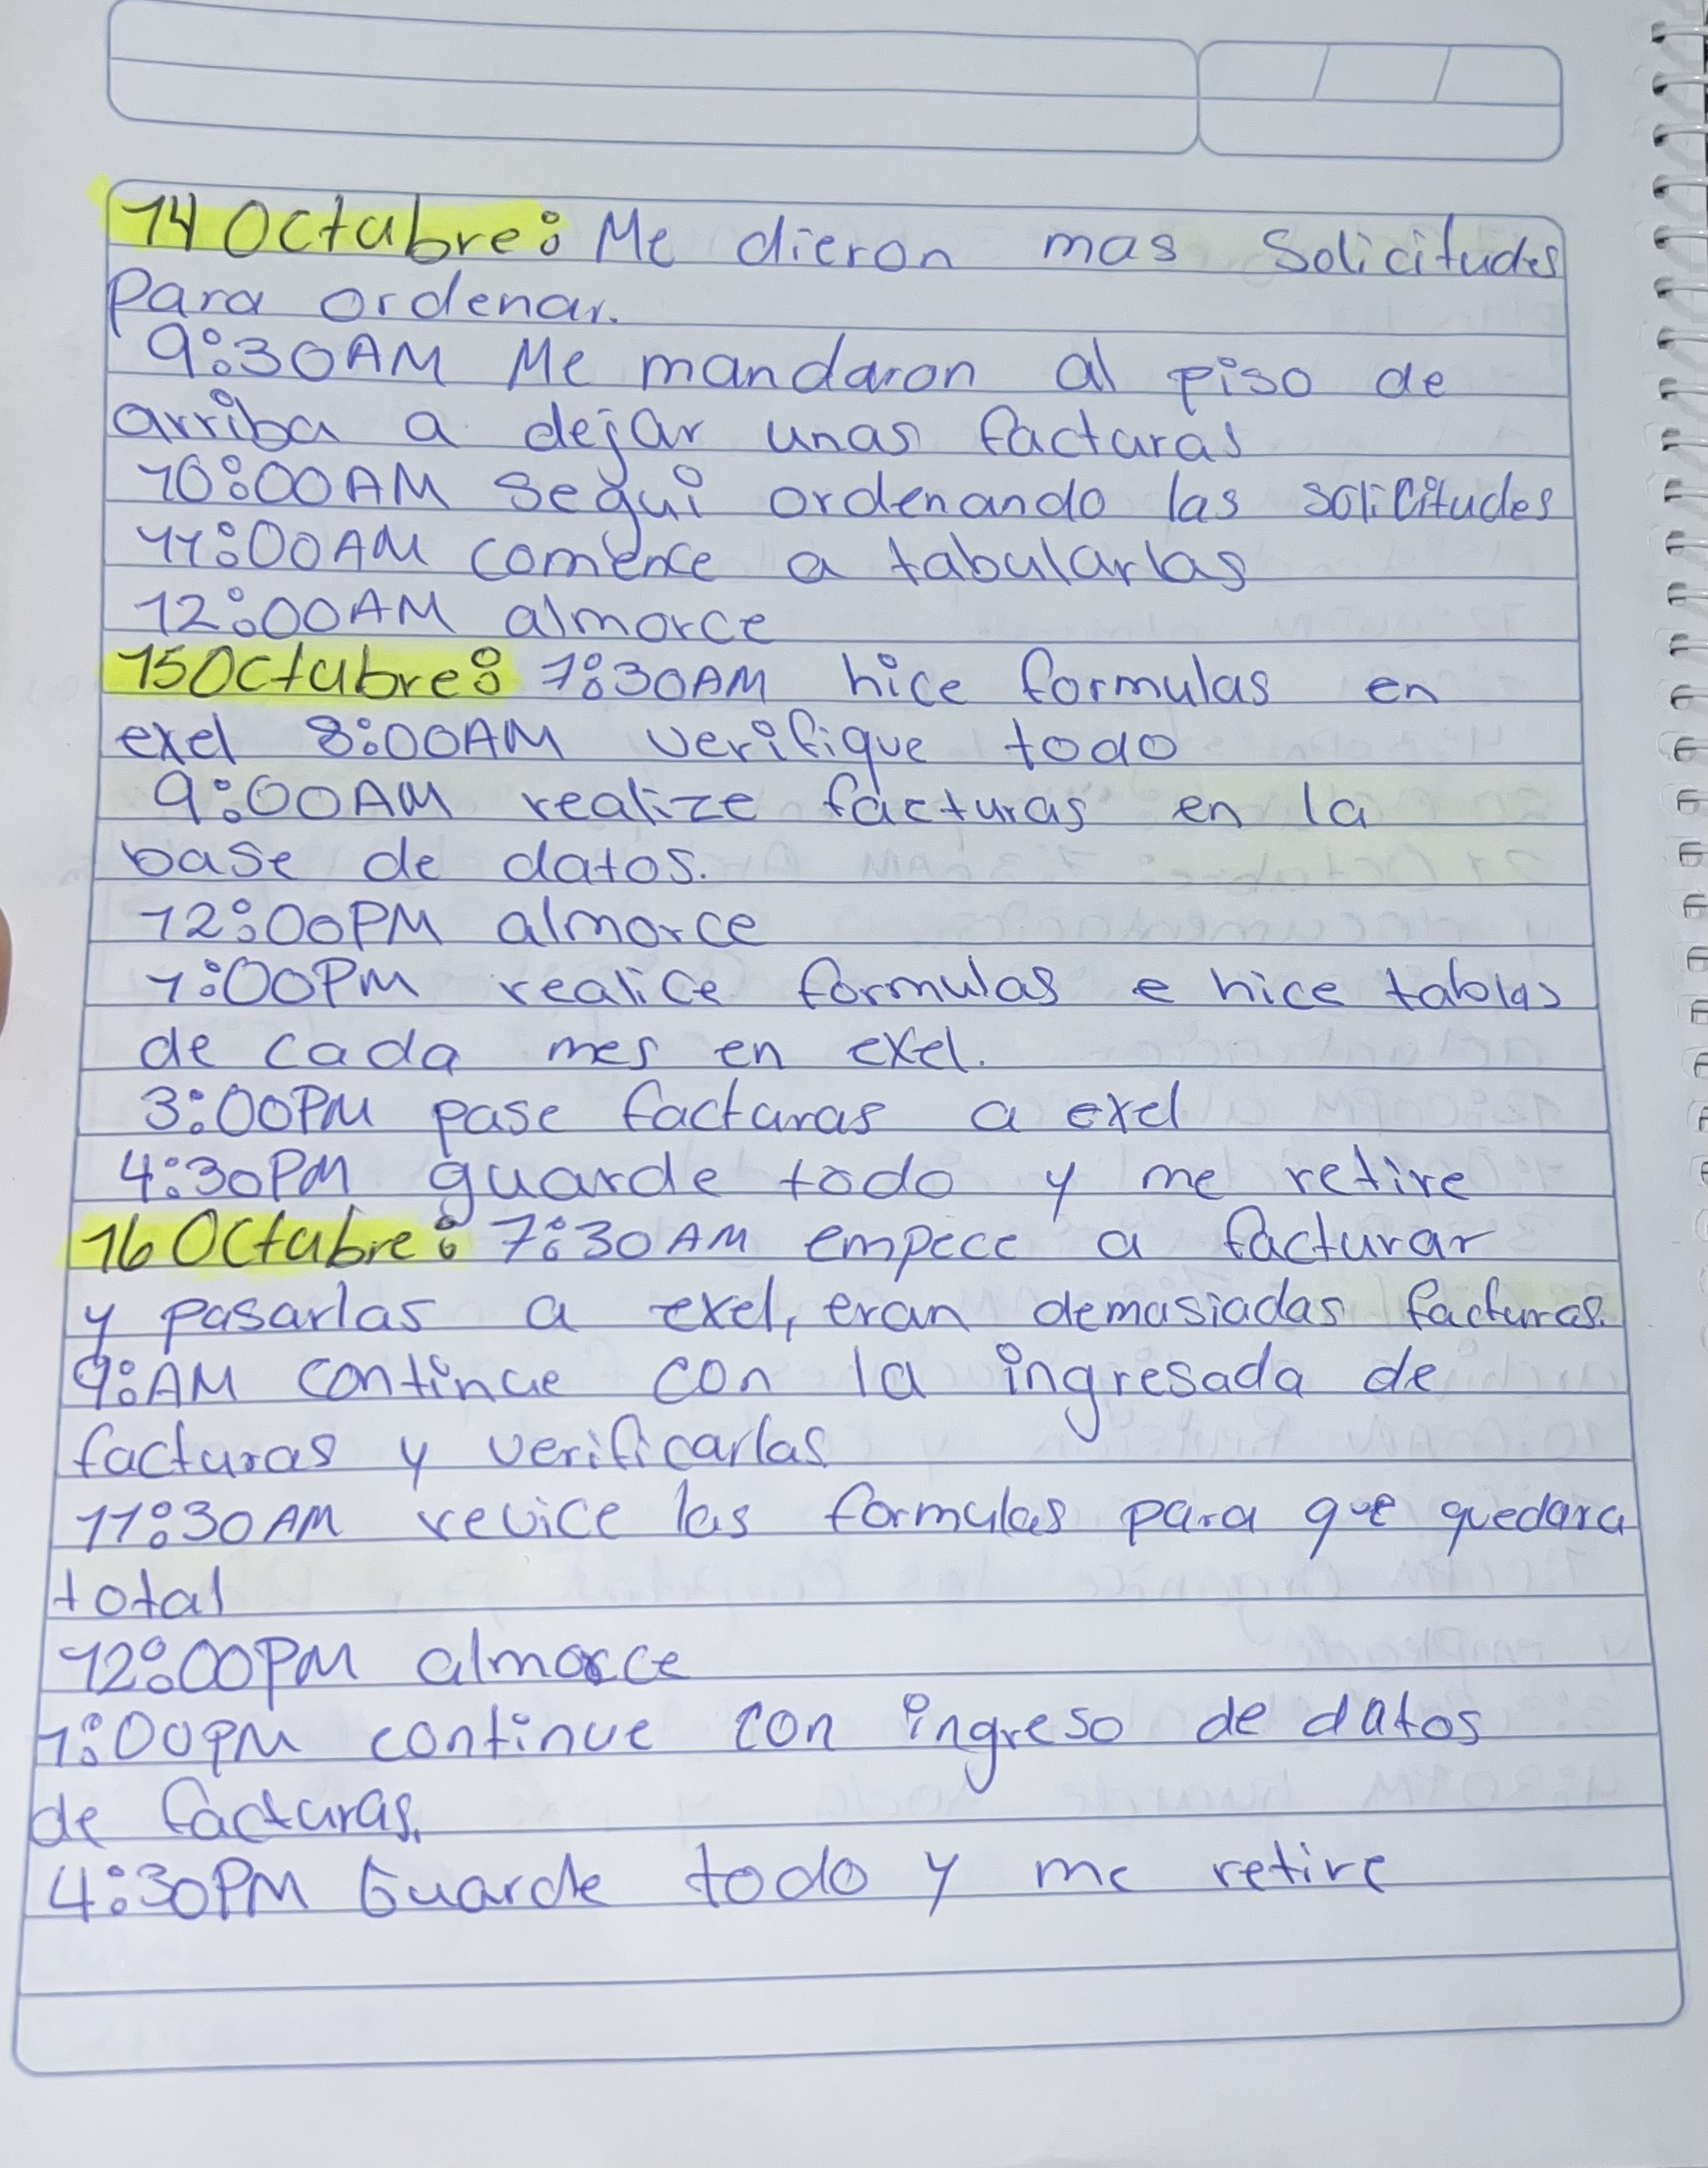 14 Octubre: Me dieron mas Solicitudes
Para ordenar.
9:30AM Me mandaron al piso de
arriba a dejar unas facturas
10:00AM Segui ordenando las solicitudes
11:00AM comence a tabularlas
12:00AM almorce
15 Octubre: 7:30AM hice formulas en
exel 8:00AM verifique todo
9:00AM realize facturas en la
base de datos.
12:00PM almorce
1:00PM realice formulas e hice tablas
de cada mes en exel.
3:00PM pase facturas a exel
4:30PM guarde todo y me retire
16 Octubre: 7:30AM empece a facturar
y pasarlas a exel, eran demasiadas facturas.
9:AM contince con la ingresada de
facturas y verificarlas
11:30AM revice las formulas para que quedara
total
12:00PM almorce
1:00PM continue con ingreso de datos
de facturas.
4:30PM Guarde todo y me retire